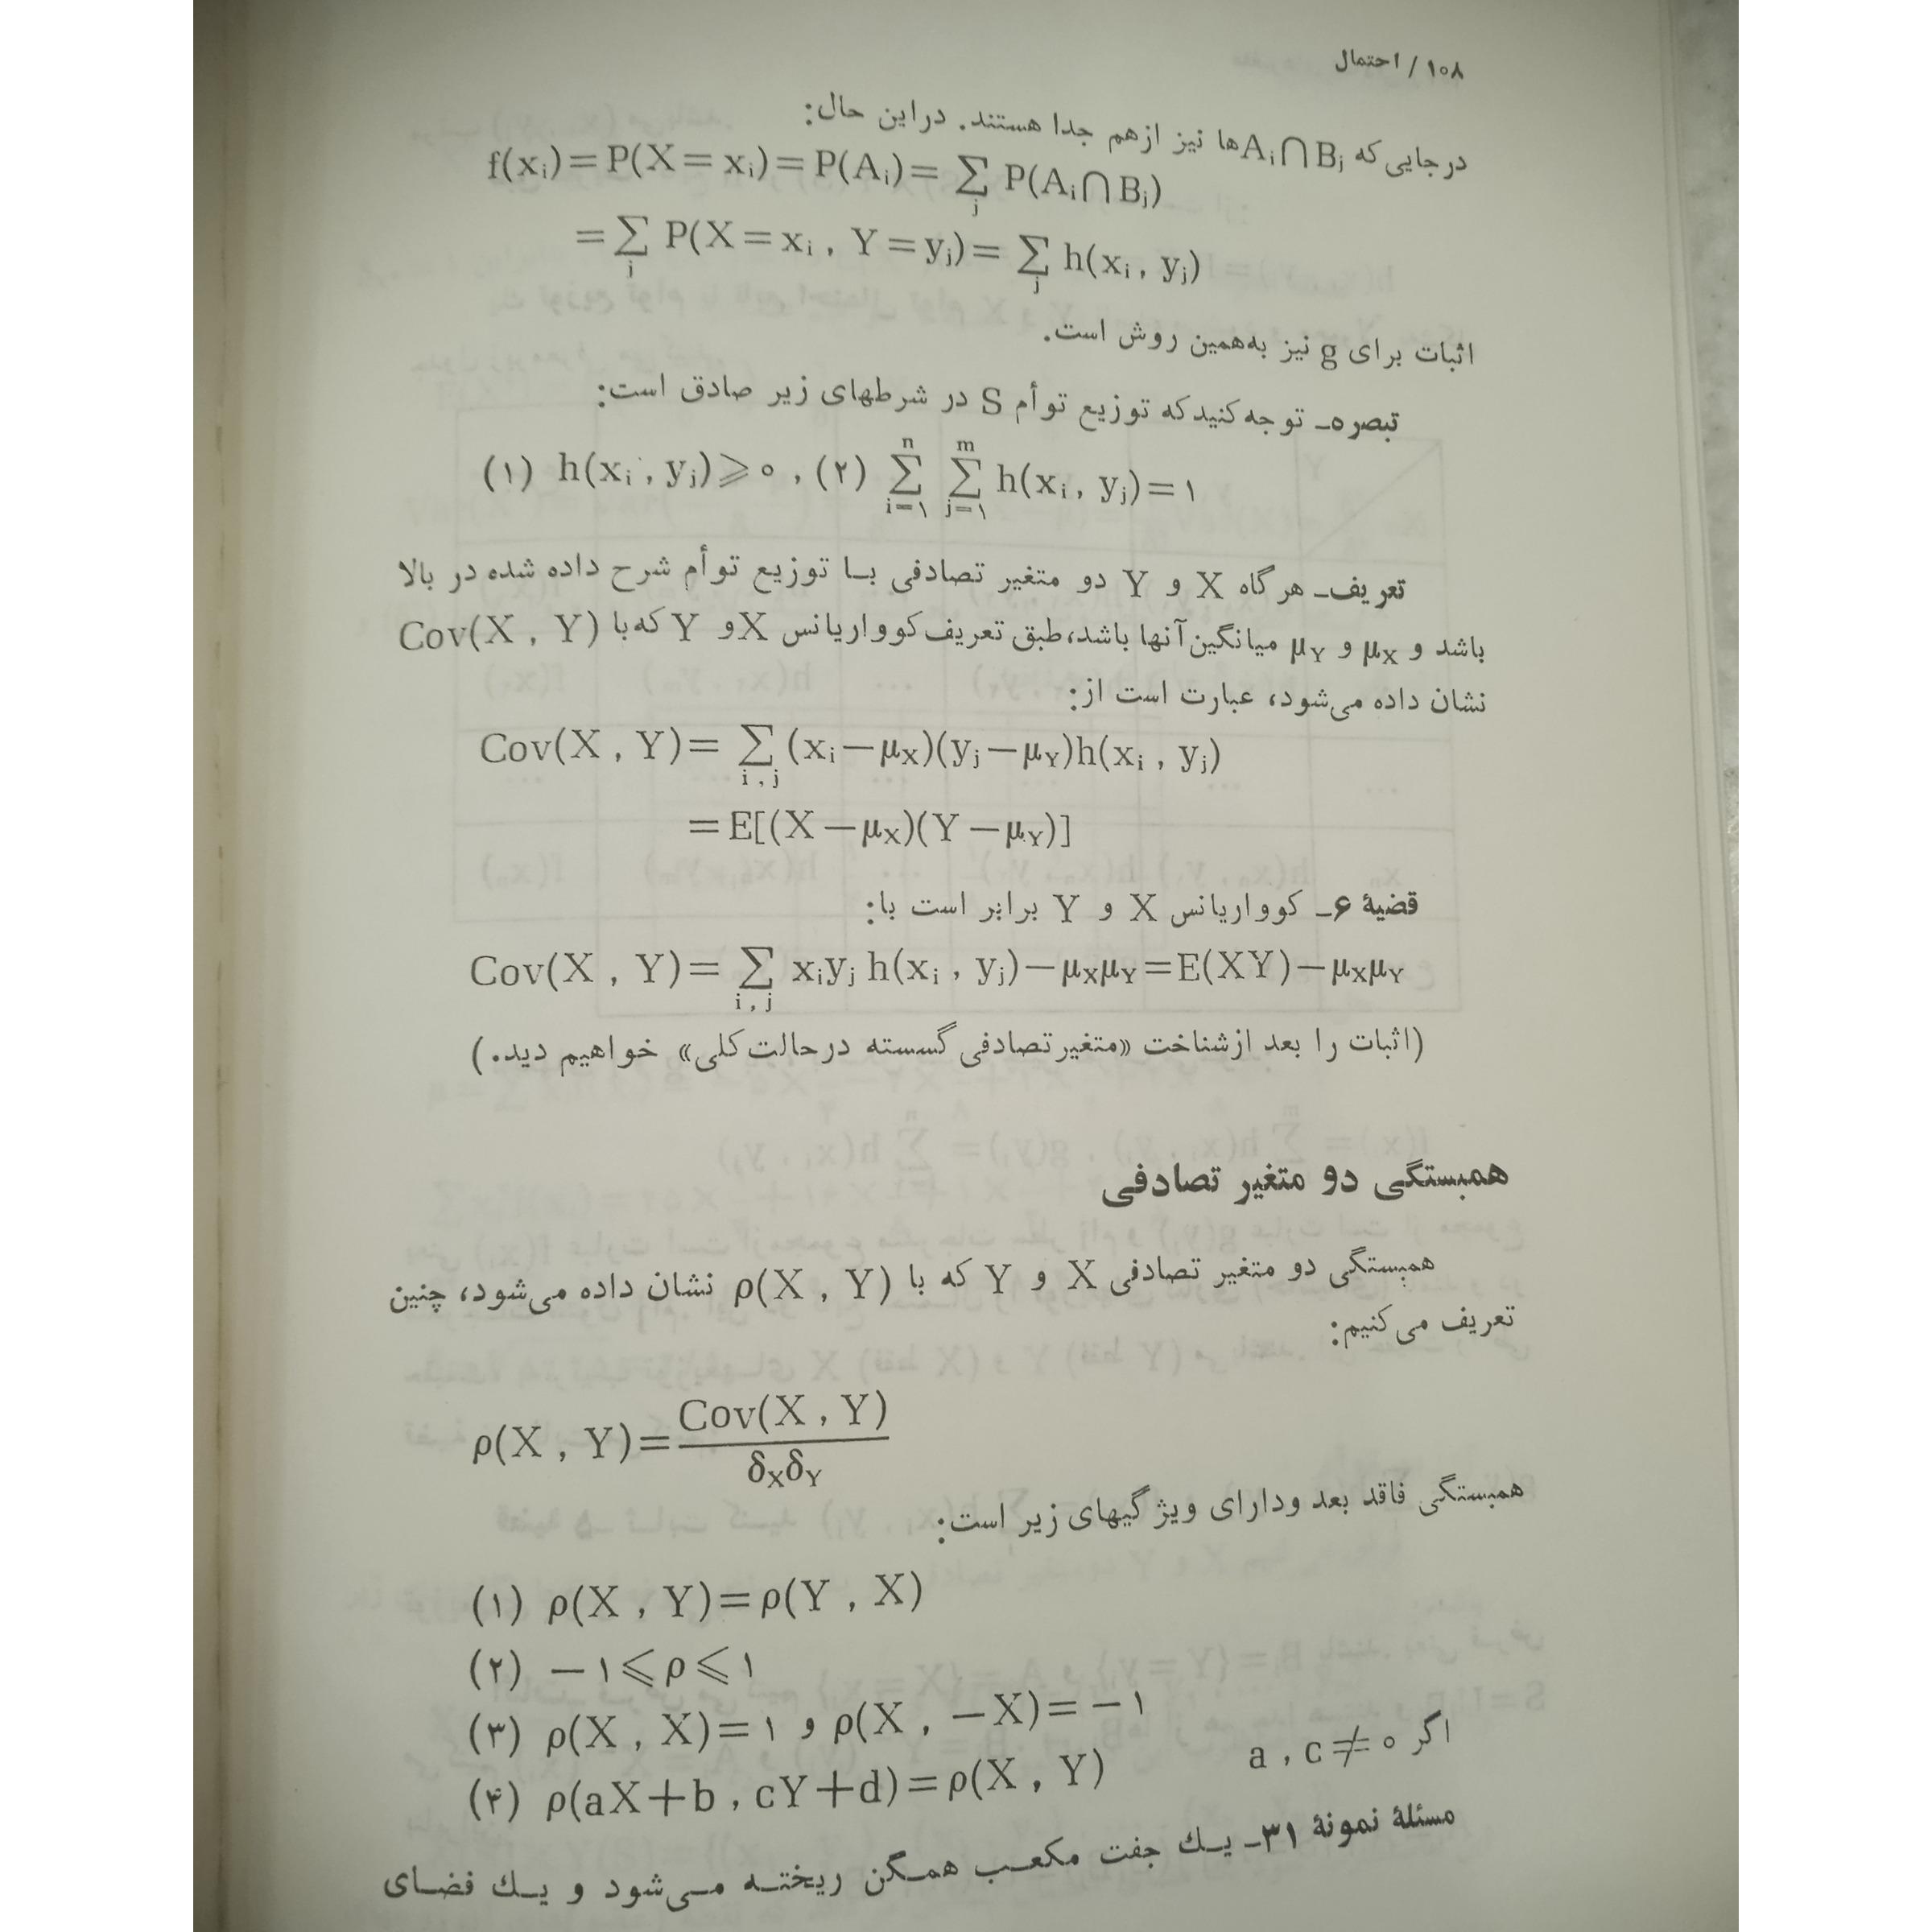 ۱۰۸ / احتمال
درجایی‌که Aᵢ∩Bⱼها نیز ازهم جدا هستند. دراین حال:
f(xᵢ)=P(X=xᵢ)=P(Aᵢ)=∑ⱼ P(Aᵢ∩Bⱼ)
=∑ⱼ P(X=xᵢ , Y=yⱼ)=∑ⱼ h(xᵢ, yⱼ)
اثبات برای g نیز به‌همین روش است.
تبصره– توجه‌کنیدکه توزیع توأم S در شرطهای زیر صادق است:
(۱) h(xᵢ , yⱼ)⩾۰ , (۲) ∑_{i=۱}^{n} ∑_{j=۱}^{m} h(xᵢ, yⱼ)=۱
تعریف– هرگاه X و Y دو متغیر تصادفی با توزیع توأم شرح داده شده در بالا
باشد و μ_X و μ_Y میانگین‌آنها باشد، طبق تعریف‌کوواریانس Xو Y که‌با Cov(X , Y)
نشان داده می‌شود، عبارت است از:
Cov(X , Y)= ∑_{i , j} (xᵢ–μ_X)(yⱼ–μ_Y)h(xᵢ , yⱼ)
=E[(X–μ_X)(Y–μ_Y)]
قضیهٔ ۶– کوواریانس X و Y برابر است با:
Cov(X , Y)= ∑_{i , j} xᵢyⱼ h(xᵢ , yⱼ)–μ_Xμ_Y=E(XY)–μ_Xμ_Y
(اثبات را بعد ازشناخت «متغیرتصادفی‌گسسته درحالت‌کلی» خواهیم دید.)
همبستگی دو متغیر تصادفی
همبستگی دو متغیر تصادفی X و Y که با ρ(X , Y) نشان داده می‌شود، چنین
تعریف می‌کنیم:
ρ(X , Y)=Cov(X , Y)/δ_Xδ_Y
همبستگی فاقد بعد ودارای ویژگیهای زیر است:
(۱) ρ(X , Y)=ρ(Y , X)
(۲) –۱⩽ρ⩽۱
(۳) ρ(X , X)=۱ و ρ(X , –X)=–۱
(۴) ρ(aX+b , cY+d)=ρ(X , Y) اگر a , c≠۰
مسئلهٔ نمونهٔ ۳۱– یك جفت مکعب همگن ریخته می‌شود و یك فضای